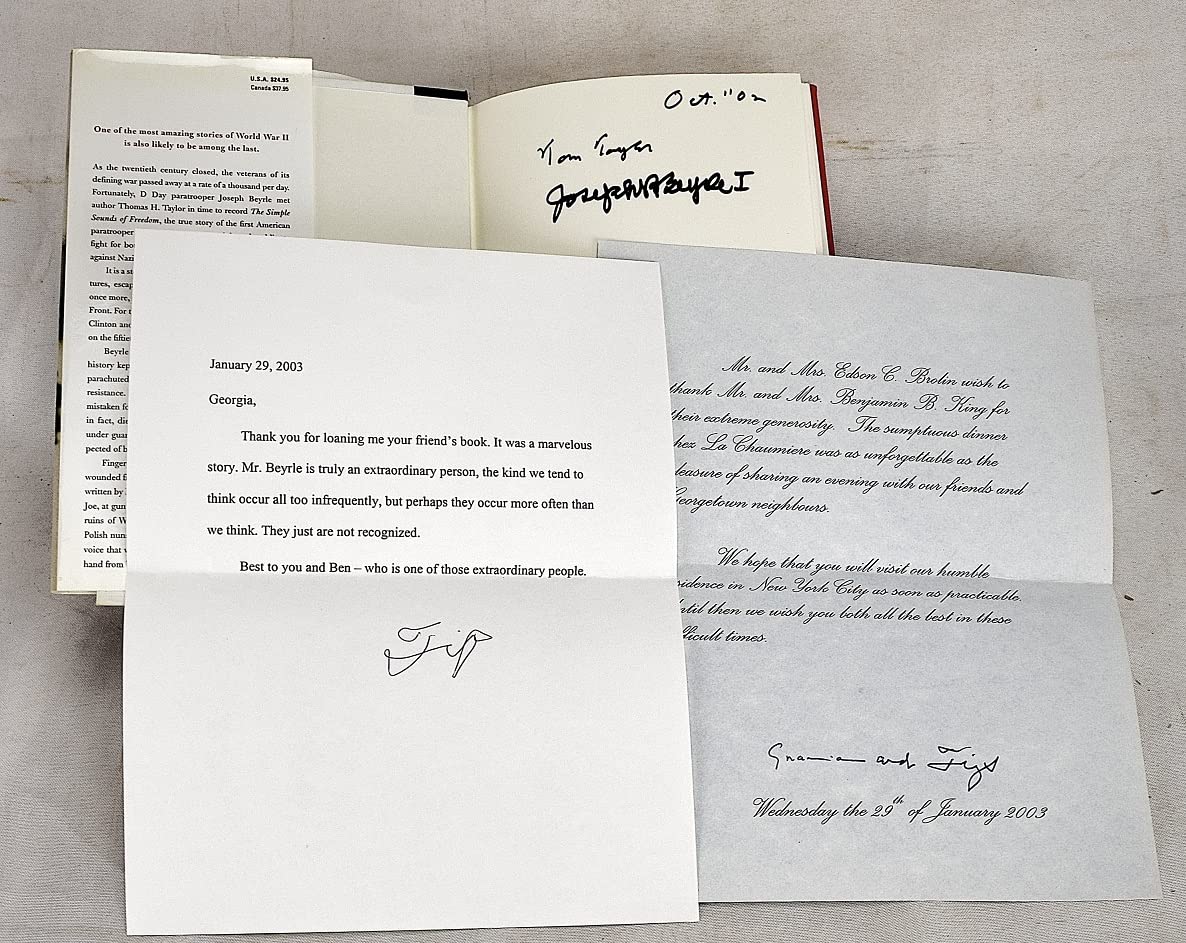 U.S.A. $24.95
Canada $37.95
One of the most amazing stories of World War II
is also likely to be among the last.
As the twentieth century closed, the veterans of its
defining war passed away at a rate of a thousand per day.
Fortunately, D Day paratrooper Joseph Beyrle met
author Thomas H. Taylor in time to record The Simple
Sounds of Freedom, the true story of the first American
paratrooper
fight for bo
against Nazi
It is a st
tures, escap
once more,
Front. For t
Clinton and
on the fiftie
Beyrle
history kep
parachuted
resistance.
mistaken fo
in fact, di
under guar
pected of b
Finger
wounded f
written by
Joe, at gun
ruins of W
Polish nun
voice that
hand from
Oct. "02
Tom Taylor
Joseph R Beyrle I
January 29, 2003
Georgia,
Thank you for loaning me your friend's book. It was a marvelous
story. Mr. Beyrle is truly an extraordinary person, the kind we tend to
think occur all too infrequently, but perhaps they occur more often than
we think. They just are not recognized.
Best to you and Ben – who is one of those extraordinary people.
Mr. and Mrs. Edson C. Brolin wish to
thank Mr. and Mrs. Benjamin B. King for
their extreme generosity. The sumptuous dinner
hez La Chaumiere was as unforgettable as the
leasure of sharing an evening with our friends and
Georgetown neighbours.
We hope that you will visit our humble
sidence in New York City as soon as practicable.
ntil then we wish you both all the best in these
ficult times.
and
Wednesday the 29th of January 2003